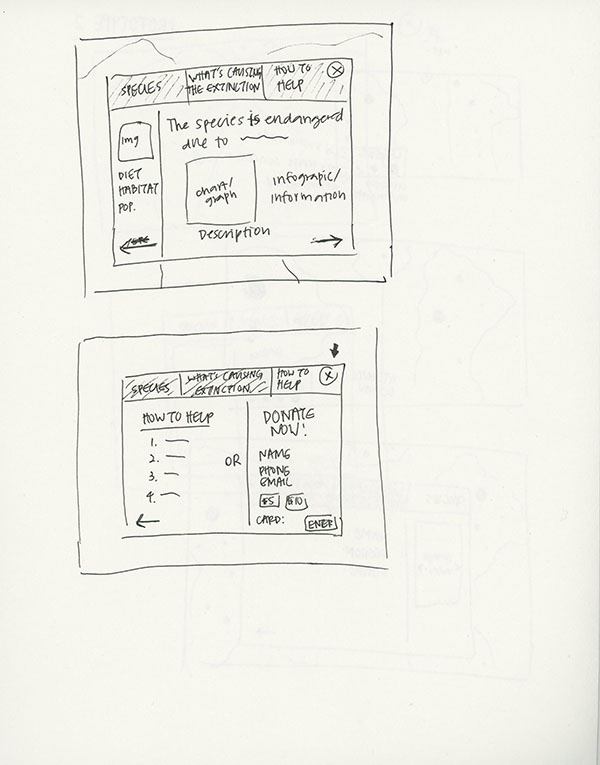 SPECIES
WHAT'S CAUSING
THE EXTINCTION
HOW TO
HELP
X
The species is endangered
due to
img
DIET
HABITAT
POP.
chart/
graph
infograpic/
information
Description
SPECIES
WHAT'S CAUSING
EXTINCTION
HOW TO
HELP
X
HOW TO HELP
1.
2.
3.
4.
OR
DONATE
NOW!
NAME
PHONE
EMAIL
$5 $10
CARD:
ENTER